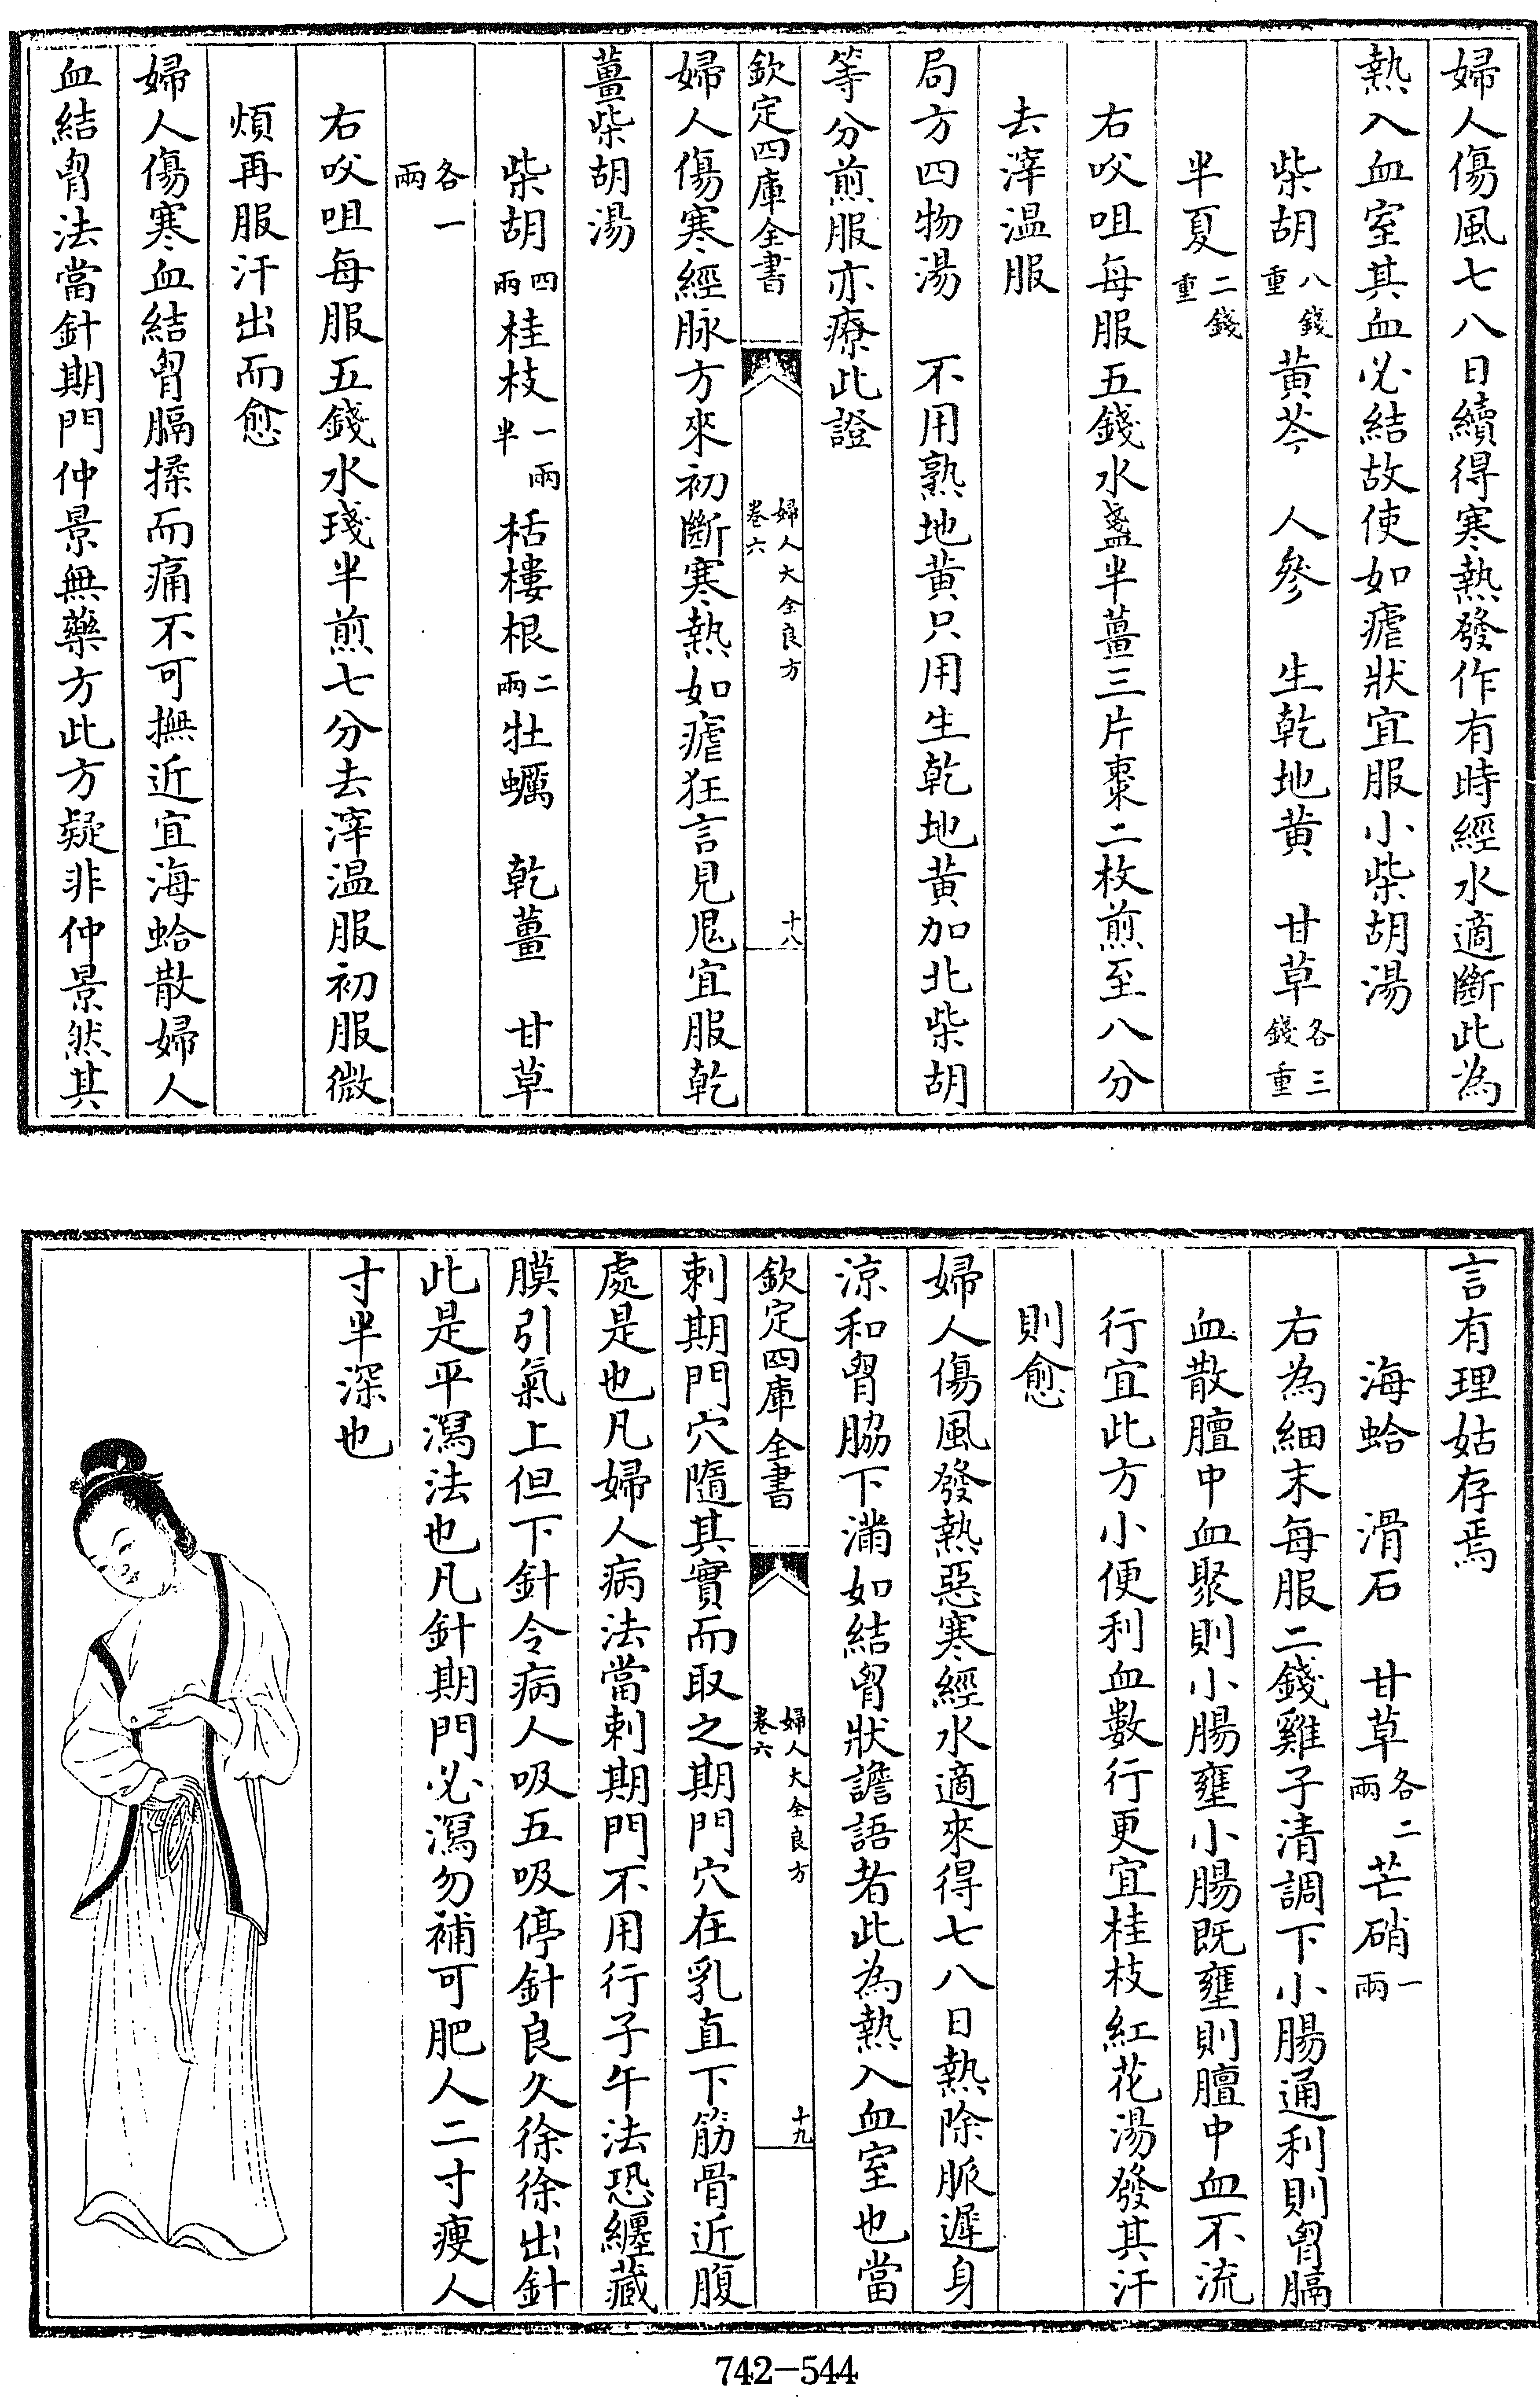 婦人傷風七八日續得寒熱發作有時經水適斷此為
熱入血室其血必結故使如瘧狀宜服小柴胡湯
柴胡八錢重黃芩　人參　生乾地黃　甘草各三錢重
半夏二錢重
右㕮咀每服五錢水盞半薑三片棗二枚煎至八分
去滓温服
局方四物湯　不用熟地黃只用生乾地黃加北柴胡
等分煎服亦療此證
欽定四庫全書　婦人大全良方卷六　十八
婦人傷寒經脉方來初斷寒熱如瘧狂言見鬼宜服乾
薑柴胡湯
柴胡四兩桂枝一兩半栝樓根二兩牡蠣　乾薑　甘草
各一兩
右㕮咀每服五錢水琖半煎七分去滓温服初服微
煩再服汗出而愈
婦人傷寒血結胷膈揉而痛不可撫近宜海蛤散婦人
血結胷法當針期門仲景無藥方此方疑非仲景然其
言有理姑存焉
海蛤　滑石　甘草各二兩芒硝一兩
右為細末每服二錢雞子清調下小腸通利則胷膈
血散膻中血聚則小腸壅小腸既壅則膻中血不流
行宜此方小便利血數行更宜桂枝紅花湯發其汗
則愈
婦人傷風發熱惡寒經水適來得七八日熱除脈遲身
涼和胷脇下滿如結胷狀譫語者此為熱入血室也當
欽定四庫全書　婦人大全良方卷六　十九
刺期門穴隨其實而取之期門穴在乳直下筋骨近腹
處是也凡婦人病法當刺期門不用行子午法恐纏臟
膜引氣上但下針令病人吸五吸停針良久徐徐出針
此是平瀉法也凡針期門必瀉勿補可肥人二寸瘦人
寸半深也
742-544